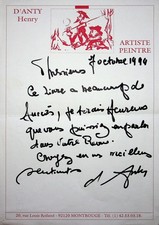 D'ANTY
Henry
ARTISTE
PEINTRE
7 octobre 1994
Messieurs
Ce livre a beaucoup de
succès, je serais heureux
que vous puissiez en parler
dans votre Revue.
Croyez en mes meilleurs
sentiments
d'Anty
92120 MONTROUGE